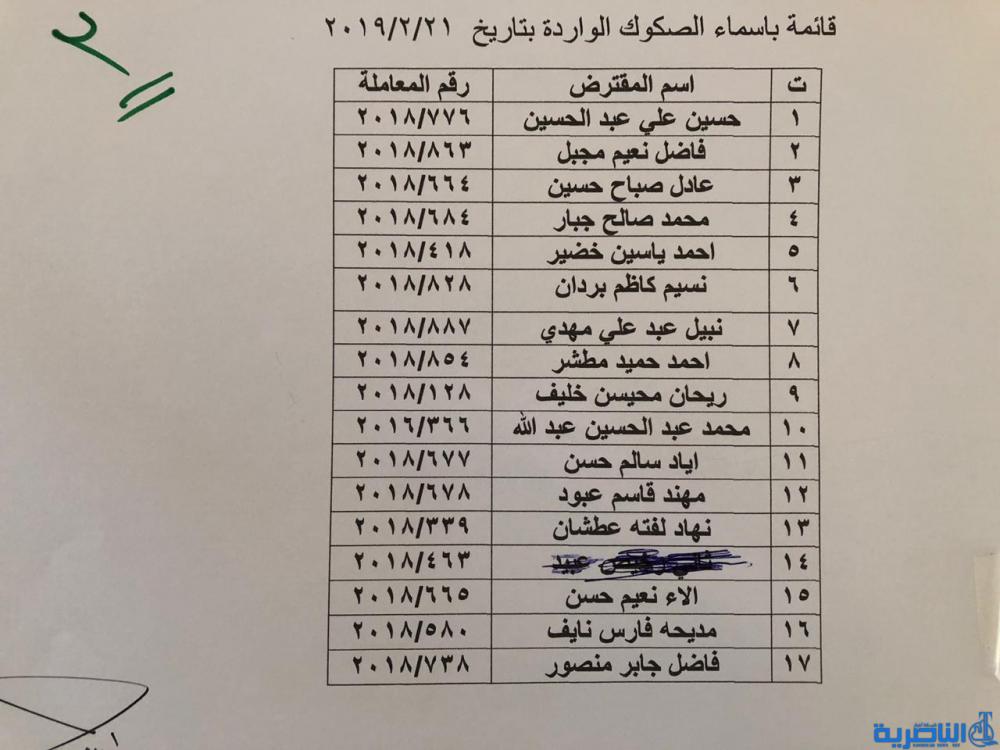 ٢
قائمة باسماء الصكوك الواردة بتاريخ ٢٠١٩/٢/٢١
ت اسم المقترض رقم المعاملة
١ حسين علي عبد الحسين ٢٠١٨/٧٧٦
٢ فاضل نعيم مجبل ٢٠١٨/٨٦٣
٣ عادل صباح حسين ٢٠١٨/٦٦٤
٤ محمد صالح جبار ٢٠١٨/٦٨٤
٥ احمد ياسين خضير ٢٠١٨/٤١٨
٦ نسيم كاظم بردان ٢٠١٨/٨٢٨
٧ نبيل عبد علي مهدي ٢٠١٨/٨٨٧
٨ احمد حميد مطشر ٢٠١٨/٨٥٤
٩ ريحان محيسن خليف ٢٠١٨/١٢٨
١٠ محمد عبد الحسين عبد الله ٢٠١٦/٣٦٦
١١ اياد سالم حسن ٢٠١٨/٦٧٧
١٢ مهند قاسم عبود ٢٠١٨/٦٧٨
١٣ نهاد لفته عطشان ٢٠١٨/٣٣٩
١٤ عبيد ٢٠١٨/٤٦٣
١٥ الاء نعيم حسن ٢٠١٨/٦٦٥
١٦ مديحه فارس نايف ٢٠١٨/٥٨٠
١٧ فاضل جابر منصور ٢٠١٨/٧٣٨
الناصرية